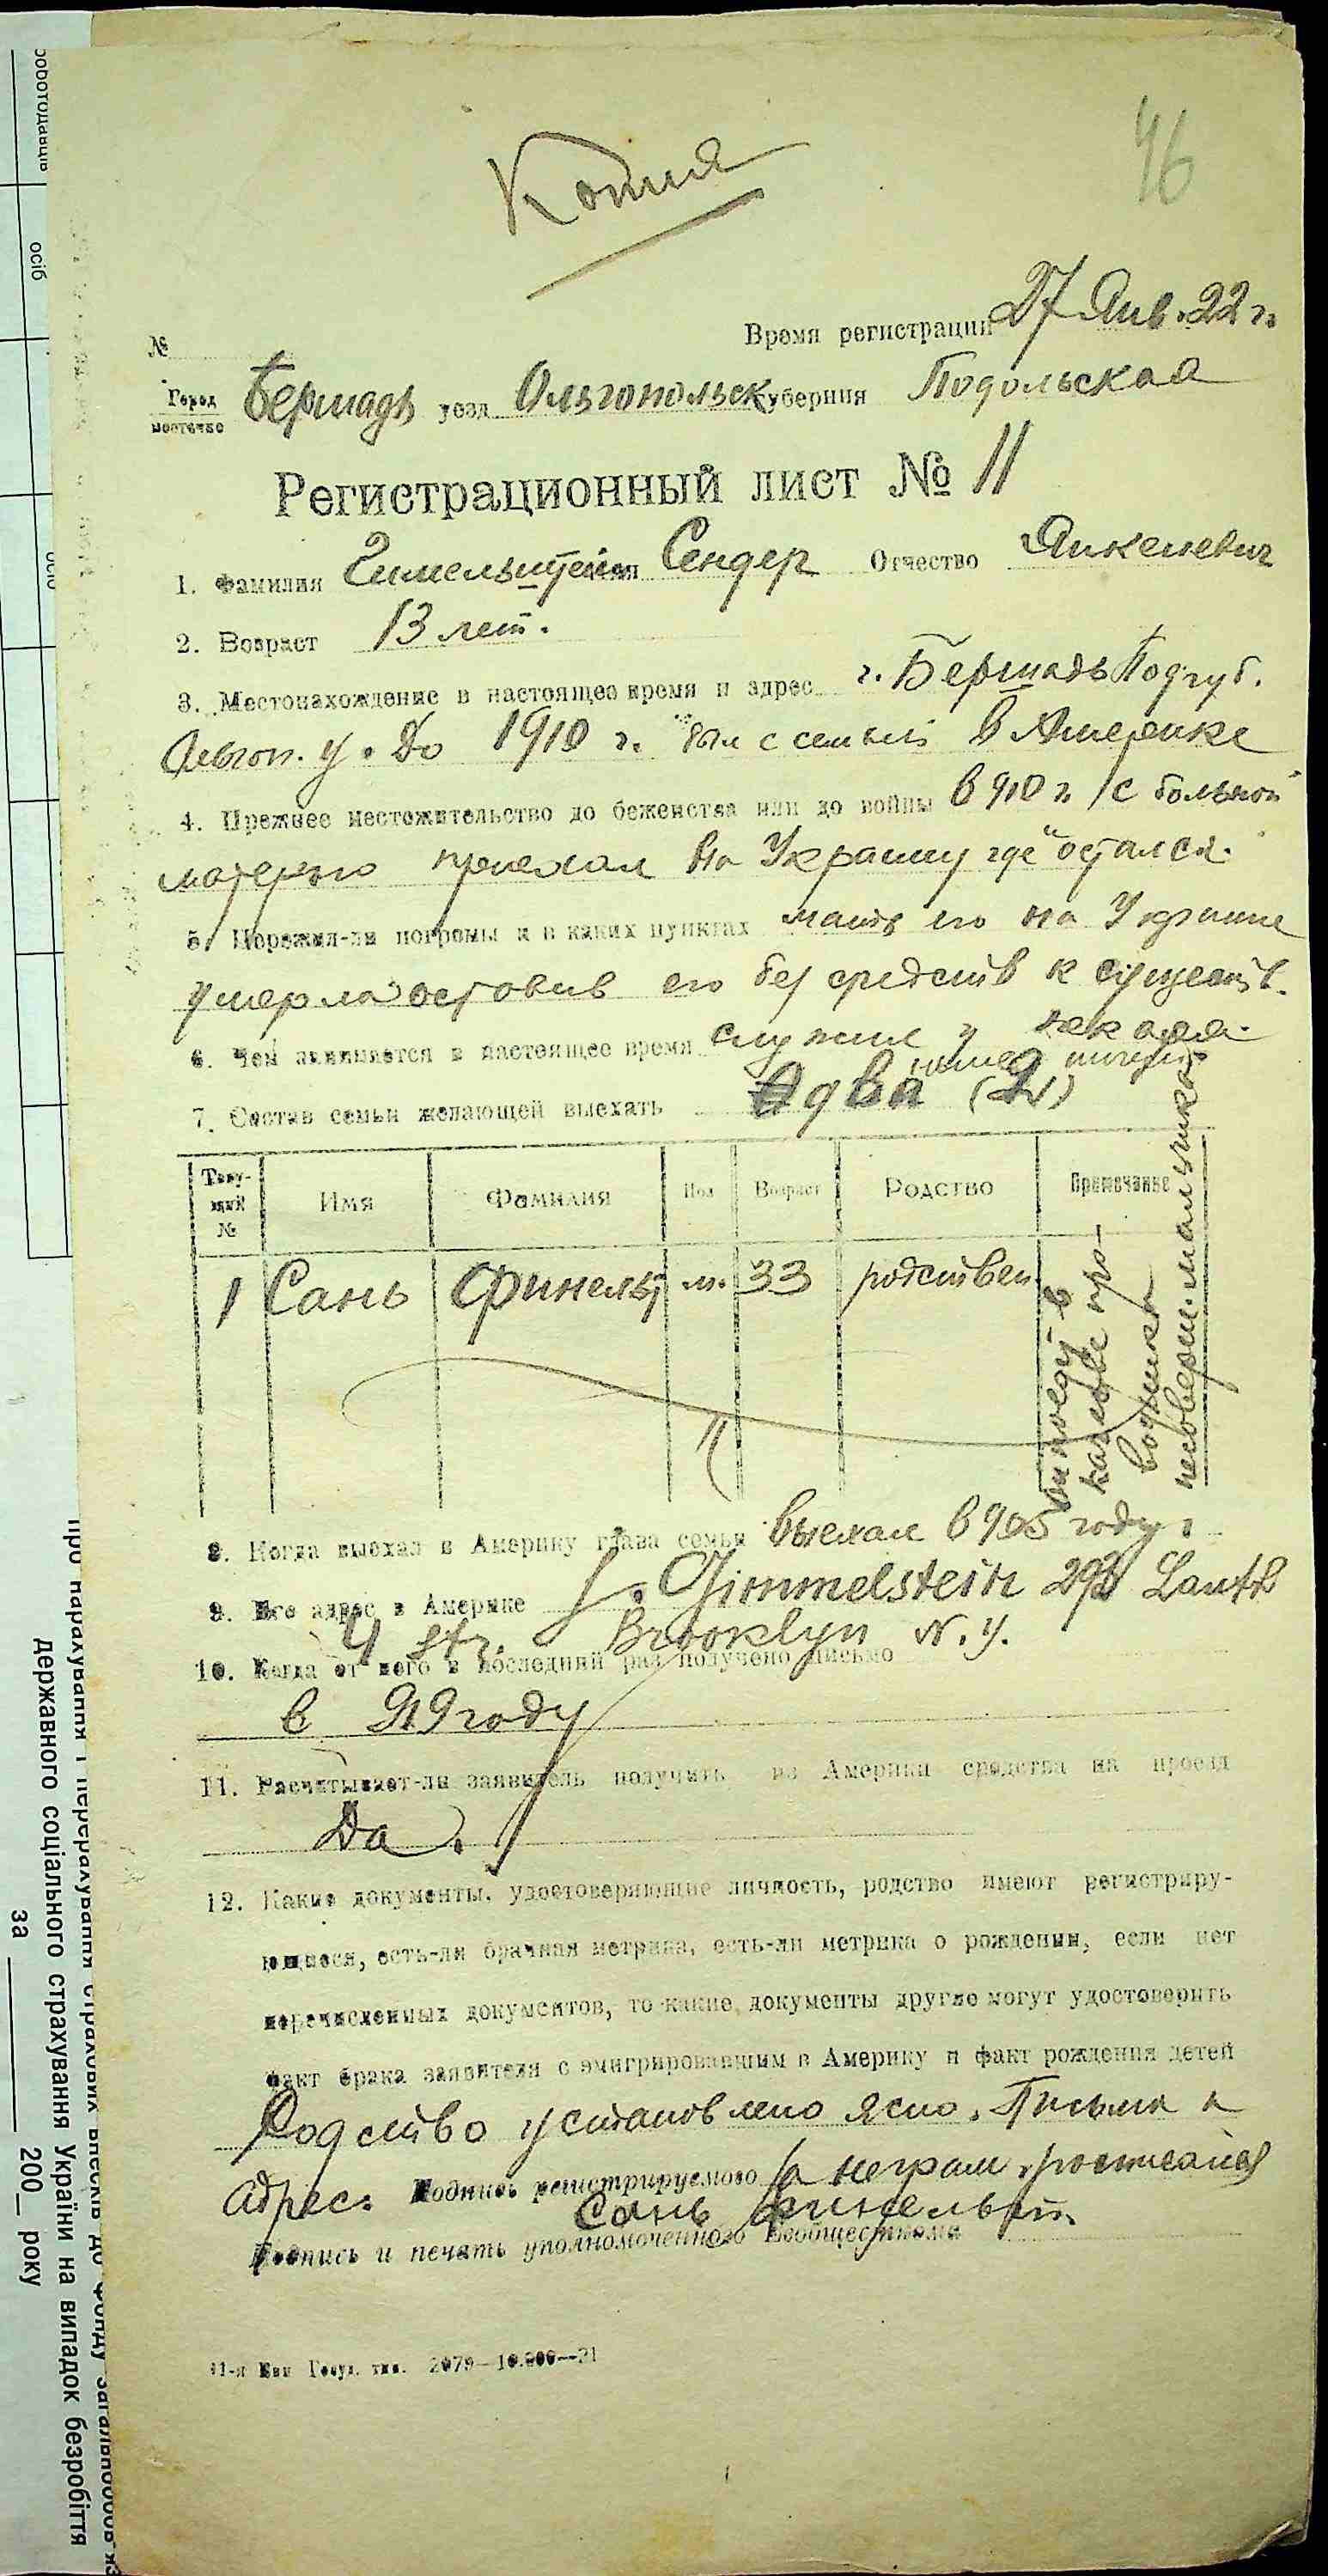 Копия
46
№
Время регистрации 27 Янв. 22 г.
Город
местечко Бершадь уезд Ольгопольск губерния Подольская
Регистрационный лист № 11
1. Фамилия Гимельштейн Имя Сендер Отчество Янкелевич
2. Возраст 13 лет.
3. Местонахождение в настоящее время и адрес г. Бершадь Под. губ.
Ольгоп. у. До 1910 г. был с семьей в Америке
4. Прежнее местожительство до беженства или до войны в 910 г. с больной
матерью приехал на Украину где остался.
5. Пережил-ли погромы и в каких пунктах мать его на Украине
умерла оставив его без средств к существ.
6. Чем занимается в настоящее время служит у
7. Состав семьи желающей выехать два (2)
Теку-
щий
№
Имя
Фамилия
Пол
Возраст
Родство
Примечание
1 Сань Финельш м. 33 родствен.
он поедет в
качестве про-
водника
несоверш. мальчика
8. Когда выехал в Америку глава семьи выехал в 905 году.
9. Его адрес в Америке J. Gimmelstein 293 South
4 str. Brooklyn N.Y.
10. Когда от него в последний раз получено письмо
в 919 году
11. Расчитывает-ли заявитель получить из Америки средства на проезд
Да.
12. Какие документы, удостоверяющие личность, родство имеют регистриру-
ющиеся, есть-ли брачная метрика, есть-ли метрика о рождении, если нет
перечисленных документов, то какие документы другие могут удостоверить
факт брака заявителя с эмигрировавшим в Америку и факт рождения детей
Родство установлено ясно. Письма и
адрес. Подпись регистрируемого за неграм. росписался
Сань
Подпись и печать уполномоченного Евобщесткома
2079—10.000—21
державного соціального страхування України на випадок безробіття
за 200 року
осіб